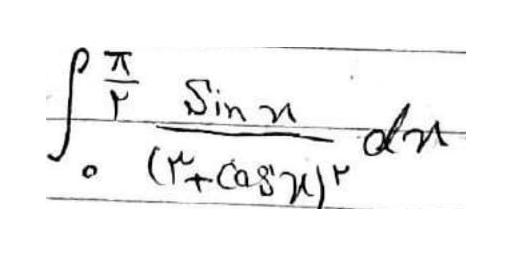 ∫₀^(π/۲) sin x / (۳+cos x)^۲ dx